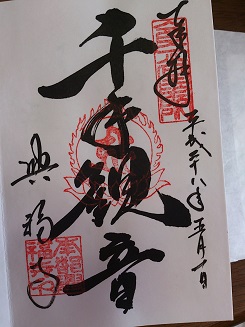 奉拝
平成二十八年五月一日
千手観音
興福寺